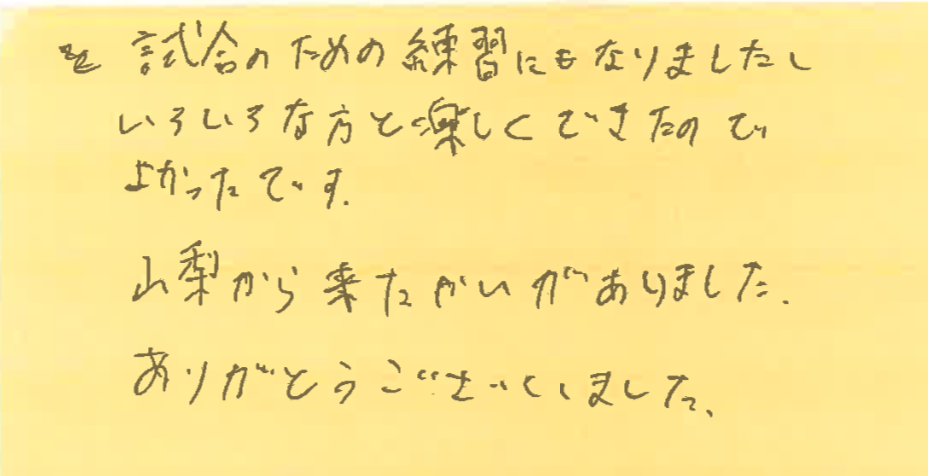 試合のための練習にもなりましたし
いろいろな方と楽しくできたので
よかったです.
山梨から来たかいがありました.
ありがとうございました.